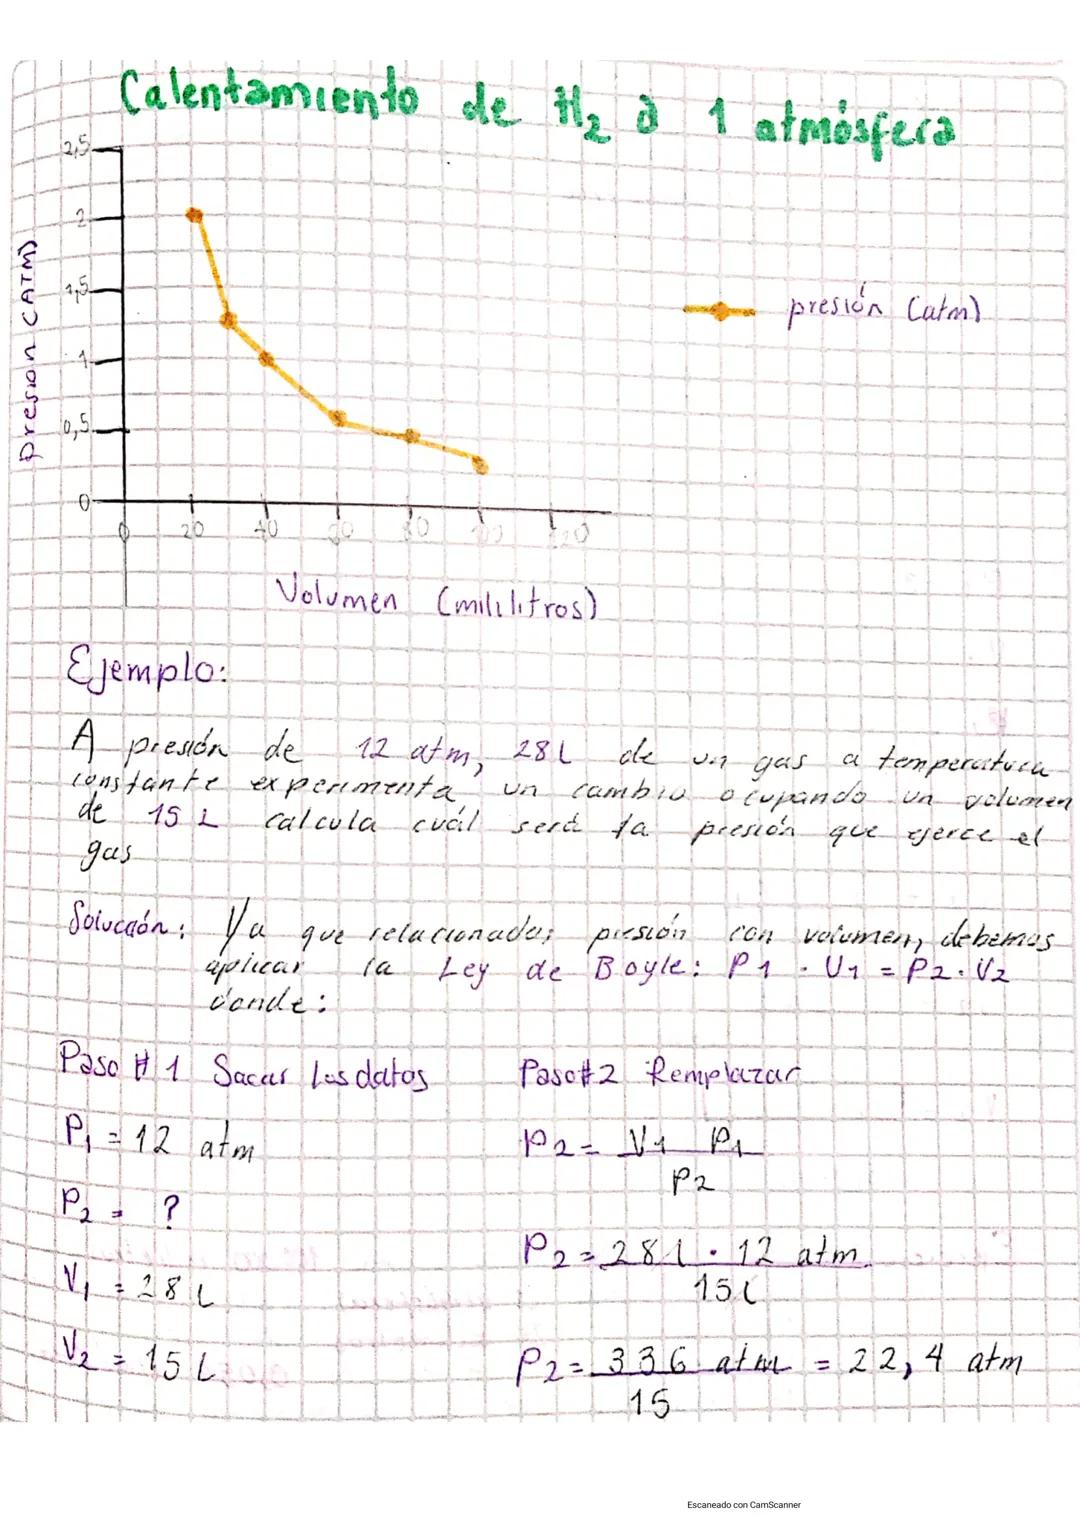 Calentamiento de H2 a 1 atmósfera
2,5
2
1,5
1
0,5
0
presion (ATM)
presión (atm)
0 20 40 60 80 100 120
Volumen (mililitros)
Ejemplo:
A presión de 12 atm, 28L de un gas a temperatura
constante experimenta un cambio ocupando un volumen
de 15 L calcula cuál será la presión que ejerce el
gas
Solución: Ya que relacionados presión con volumen, debemos
aplicar la Ley de Boyle: P1 . V1 = P2. V2
donde:
Paso # 1 Sacar los datos
P1 = 12 atm
P2 = ?
V1 = 28 L
V2 = 15 L
Paso#2 Remplazar
P2 = V1 P1
P2
P2 = 28 l . 12 atm
15 l
P2 = 336 atm = 22,4 atm
15
Escaneado con CamScanner